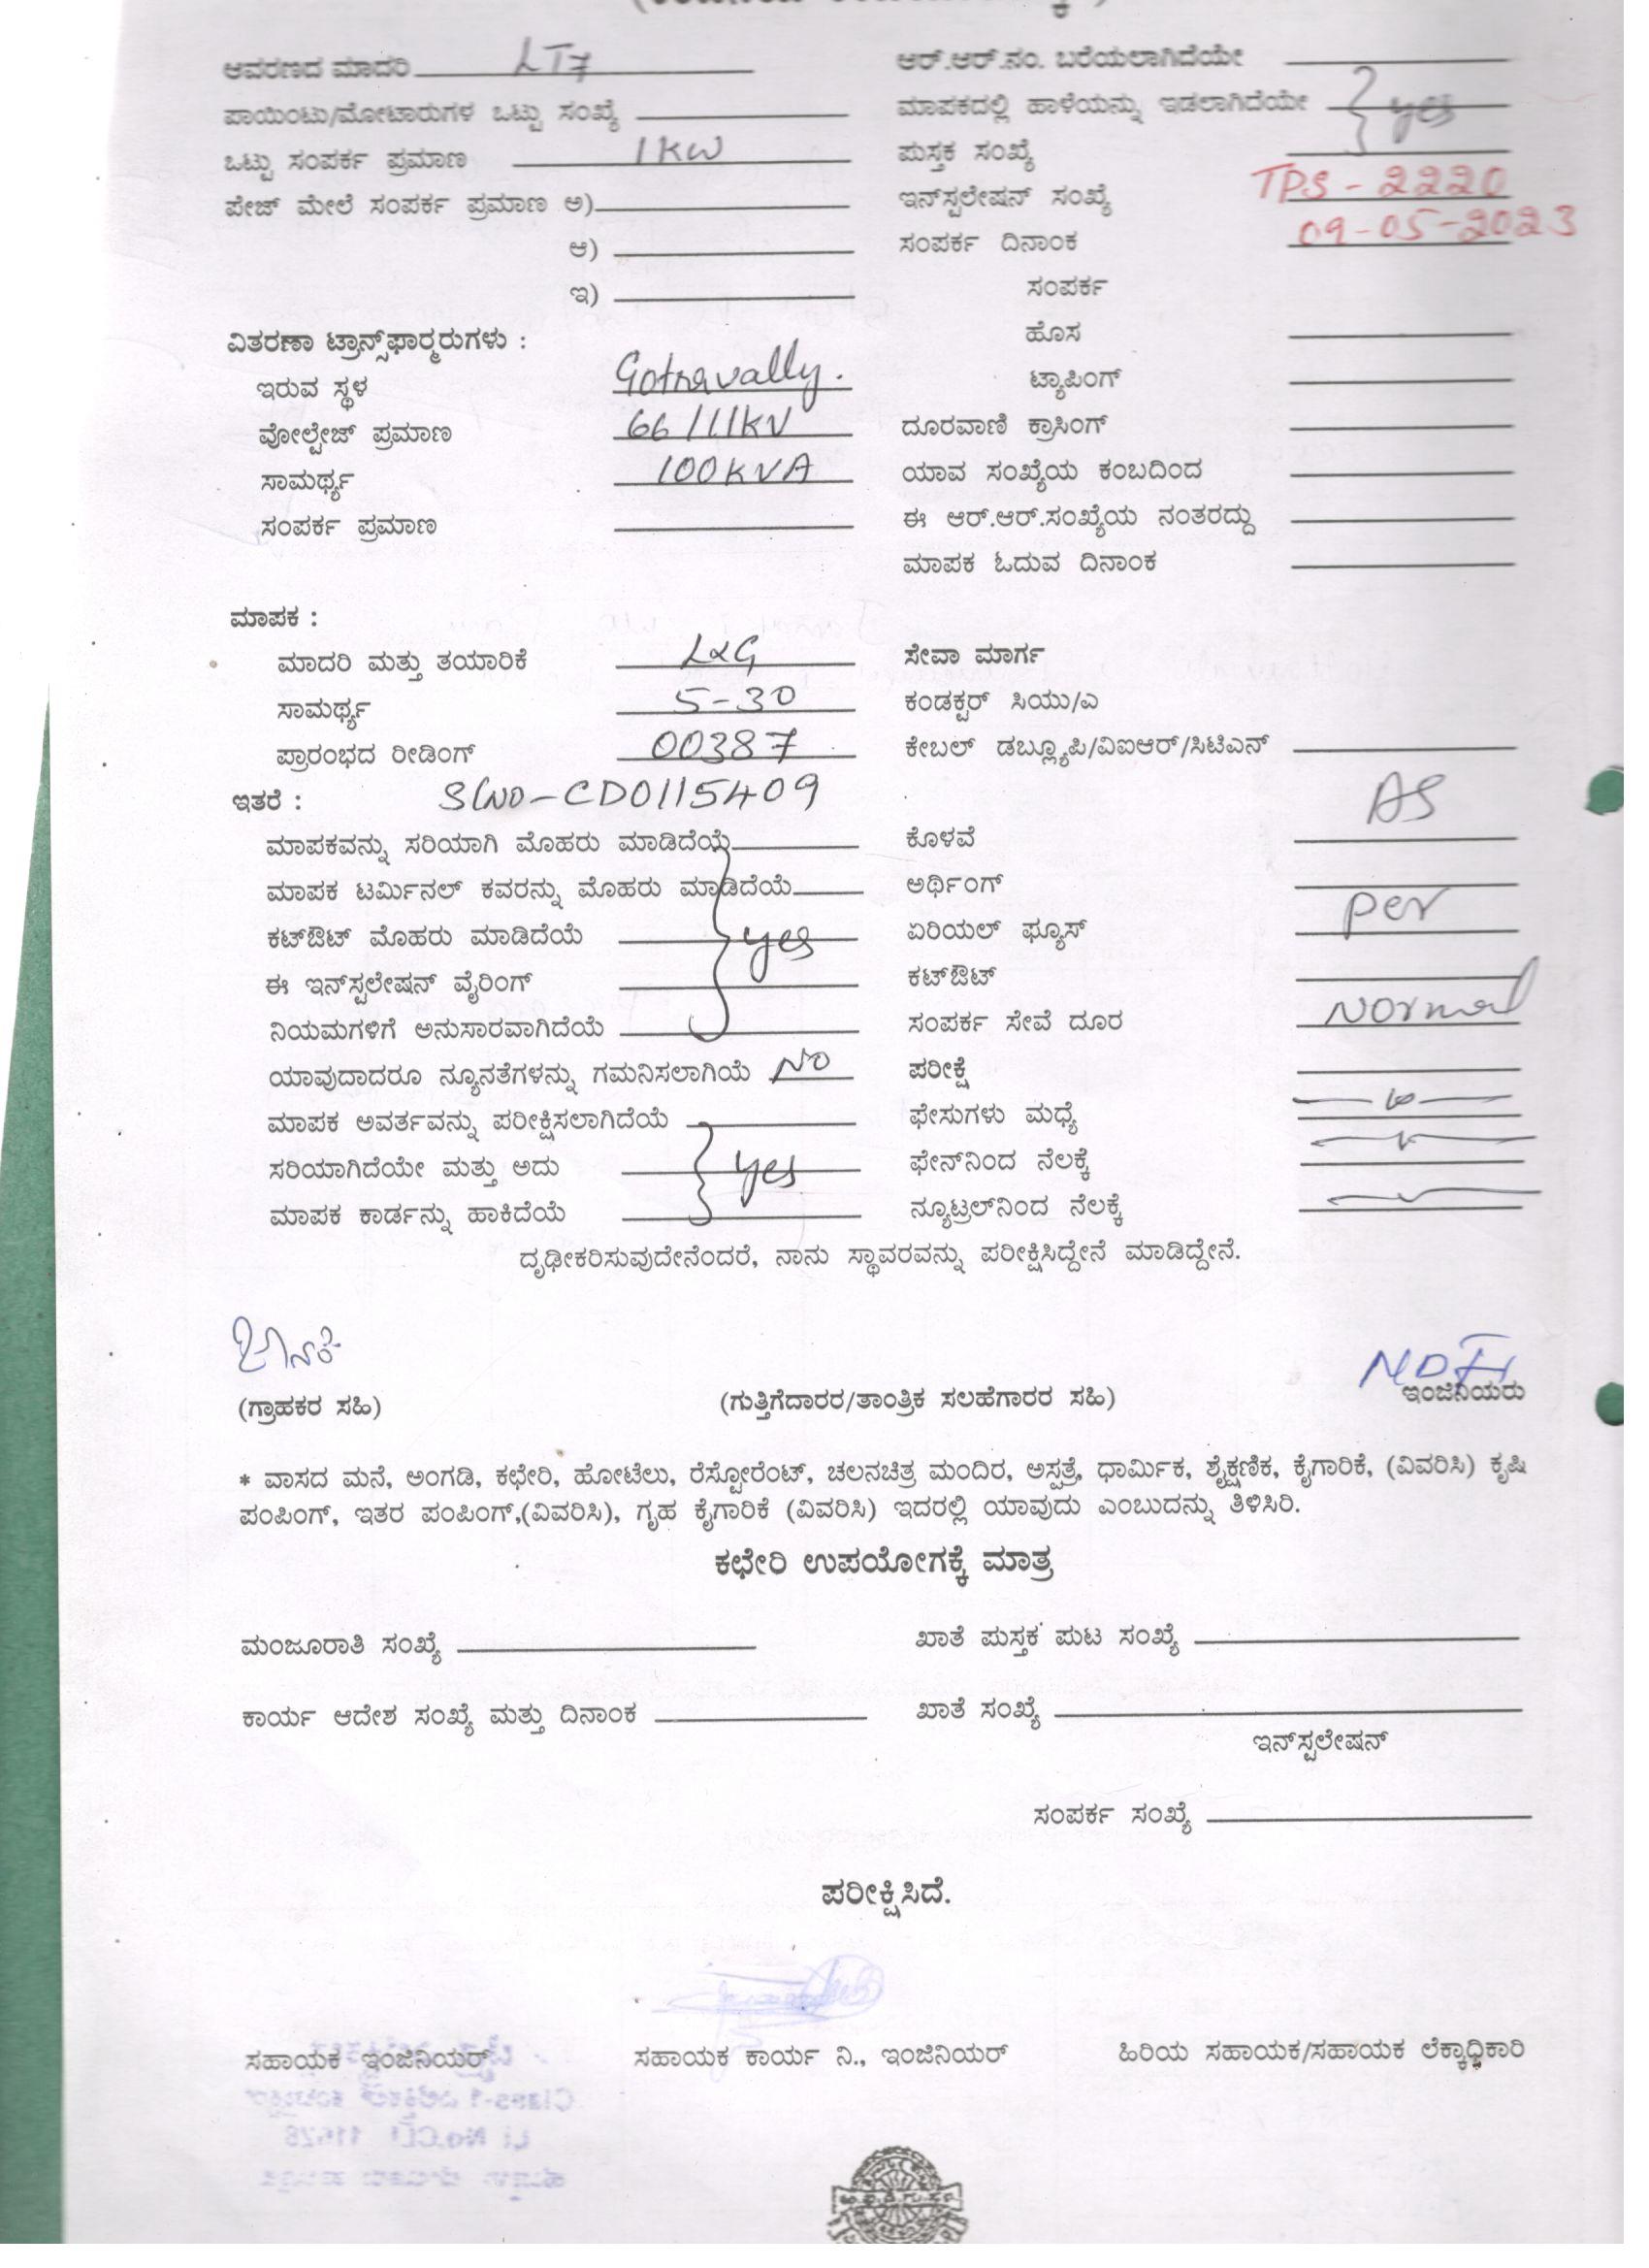 ಆವರಣದ ಮಾದರಿ LT7 ಆರ್.ಆರ್.ನಂ. ಬರೆಯಲಾಗಿದೆಯೇ
ಪಾಯಿಂಟು/ಮೋಟಾರುಗಳ ಒಟ್ಟು ಸಂಖ್ಯೆ ಮಾಪಕದಲ್ಲಿ ಹಾಳೆಯನ್ನು ಇಡಲಾಗಿದೆಯೇ yes
ಒಟ್ಟು ಸಂಪರ್ಕ ಪ್ರಮಾಣ 1KW ಪುಸ್ತಕ ಸಂಖ್ಯೆ
ಪೇಜ್ ಮೇಲೆ ಸಂಪರ್ಕ ಪ್ರಮಾಣ ಅ) ಇನ್‌ಸ್ಟಲೇಷನ್ ಸಂಖ್ಯೆ TPS-2220
ಆ) ಸಂಪರ್ಕ ದಿನಾಂಕ 09-05-2023
ಇ) ಸಂಪರ್ಕ
ವಿತರಣಾ ಟ್ರಾನ್ಸ್‌ಫಾರ್‍ಮರುಗಳು : ಹೊಸ
ಇರುವ ಸ್ಥಳ Gotnavally. ಟ್ಯಾಪಿಂಗ್
ವೋಲ್ಟೇಜ್ ಪ್ರಮಾಣ 66/11KV ದೂರವಾಣಿ ಕ್ರಾಸಿಂಗ್
ಸಾಮರ್ಥ್ಯ 100KVA ಯಾವ ಸಂಖ್ಯೆಯ ಕಂಬದಿಂದ
ಸಂಪರ್ಕ ಪ್ರಮಾಣ ಈ ಆರ್.ಆರ್.ಸಂಖ್ಯೆಯ ನಂತರದ್ದು
ಮಾಪಕ ಓದುವ ದಿನಾಂಕ
ಮಾಪಕ :
ಮಾದರಿ ಮತ್ತು ತಯಾರಿಕೆ L&G ಸೇವಾ ಮಾರ್ಗ
ಸಾಮರ್ಥ್ಯ 5-30 ಕಂಡಕ್ಟರ್ ಸಿಯು/ಎ
ಪ್ರಾರಂಭದ ರೀಡಿಂಗ್ 00387 ಕೇಬಲ್ ಡಬ್ಲ್ಯೂಪಿ/ವಿಐಆರ್/ಸಿಟಿಎನ್
ಇತರೆ : SLNO-CD0115409 AS
ಮಾಪಕವನ್ನು ಸರಿಯಾಗಿ ಮೊಹರು ಮಾಡಿದೆಯೆ ಕೊಳವೆ
ಮಾಪಕ ಟರ್ಮಿನಲ್ ಕವರನ್ನು ಮೊಹರು ಮಾಡಿದೆಯೆ ಅರ್ಥಿಂಗ್
ಕಟ್‌ಔಟ್ ಮೊಹರು ಮಾಡಿದೆಯೆ yes ಏರಿಯಲ್ ಫ್ಯೂಸ್ per
ಈ ಇನ್‌ಸ್ಟಲೇಷನ್ ವೈರಿಂಗ್ ಕಟ್‌ಔಟ್
ನಿಯಮಗಳಿಗೆ ಅನುಸಾರವಾಗಿದೆಯೆ ಸಂಪರ್ಕ ಸೇವೆ ದೂರ Normal
ಯಾವುದಾದರೂ ನ್ಯೂನತೆಗಳನ್ನು ಗಮನಿಸಲಾಗಿಯೆ NO ಪರೀಕ್ಷೆ
ಮಾಪಕ ಅವರ್ತವನ್ನು ಪರೀಕ್ಷಿಸಲಾಗಿದೆಯೆ ಫೇಸುಗಳು ಮಧ್ಯೆ
ಸರಿಯಾಗಿದೆಯೇ ಮತ್ತು ಅದು yes ಫೇನ್‌ನಿಂದ ನೆಲಕ್ಕೆ
ಮಾಪಕ ಕಾರ್ಡನ್ನು ಹಾಕಿದೆಯೆ ನ್ಯೂಟ್ರಲ್‌ನಿಂದ ನೆಲಕ್ಕೆ
ದೃಢೀಕರಿಸುವುದೇನೆಂದರೆ, ನಾನು ಸ್ಥಾವರವನ್ನು ಪರೀಕ್ಷಿಸಿದ್ದೇನೆ ಮಾಡಿದ್ದೇನೆ.
(ಗ್ರಾಹಕರ ಸಹಿ) (ಗುತ್ತಿಗೆದಾರರ/ತಾಂತ್ರಿಕ ಸಲಹೆಗಾರರ ಸಹಿ) ಇಂಜಿನಿಯರು
* ವಾಸದ ಮನೆ, ಅಂಗಡಿ, ಕಛೇರಿ, ಹೋಟೆಲು, ರೆಸ್ಟೋರೆಂಟ್, ಚಲನಚಿತ್ರ ಮಂದಿರ, ಅಸ್ಪತ್ರೆ, ಧಾರ್ಮಿಕ, ಶೈಕ್ಷಣಿಕ, ಕೈಗಾರಿಕೆ, (ವಿವರಿಸಿ) ಕೃಷಿ
ಪಂಪಿಂಗ್, ಇತರ ಪಂಪಿಂಗ್,(ವಿವರಿಸಿ), ಗೃಹ ಕೈಗಾರಿಕೆ (ವಿವರಿಸಿ) ಇದರಲ್ಲಿ ಯಾವುದು ಎಂಬುದನ್ನು ತಿಳಿಸಿರಿ.
ಕಛೇರಿ ಉಪಯೋಗಕ್ಕೆ ಮಾತ್ರ
ಮಂಜೂರಾತಿ ಸಂಖ್ಯೆ ಖಾತೆ ಪುಸ್ತಕ ಪುಟ ಸಂಖ್ಯೆ
ಕಾರ್ಯ ಆದೇಶ ಸಂಖ್ಯೆ ಮತ್ತು ದಿನಾಂಕ ಖಾತೆ ಸಂಖ್ಯೆ
ಇನ್‌ಸ್ಟಲೇಷನ್
ಸಂಪರ್ಕ ಸಂಖ್ಯೆ
ಪರೀಕ್ಷಿಸಿದೆ.
ಸಹಾಯಕ ಇಂಜಿನಿಯರ್ ಸಹಾಯಕ ಕಾರ್ಯ ನಿ., ಇಂಜಿನಿಯರ್ ಹಿರಿಯ ಸಹಾಯಕ/ಸಹಾಯಕ ಲೆಕ್ಕಾಧಿಕಾರಿ